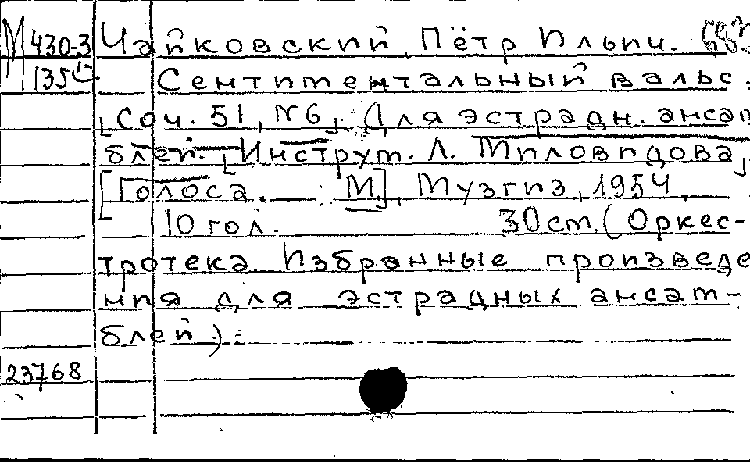 М 430-3 Чайковский, Пётр Ильич.
135 Сентиментальный вальс.
[Соч. 51, №6]. Для эстрадн. ансам-
блей. [Инструт. Л. Миловидова]
[Голоса. М], Музгиз, 1954.
10 гол. 30 cm. (Оркес-
тротека Избранные произведе
ния для эстрадных ансам-
блей).
23768